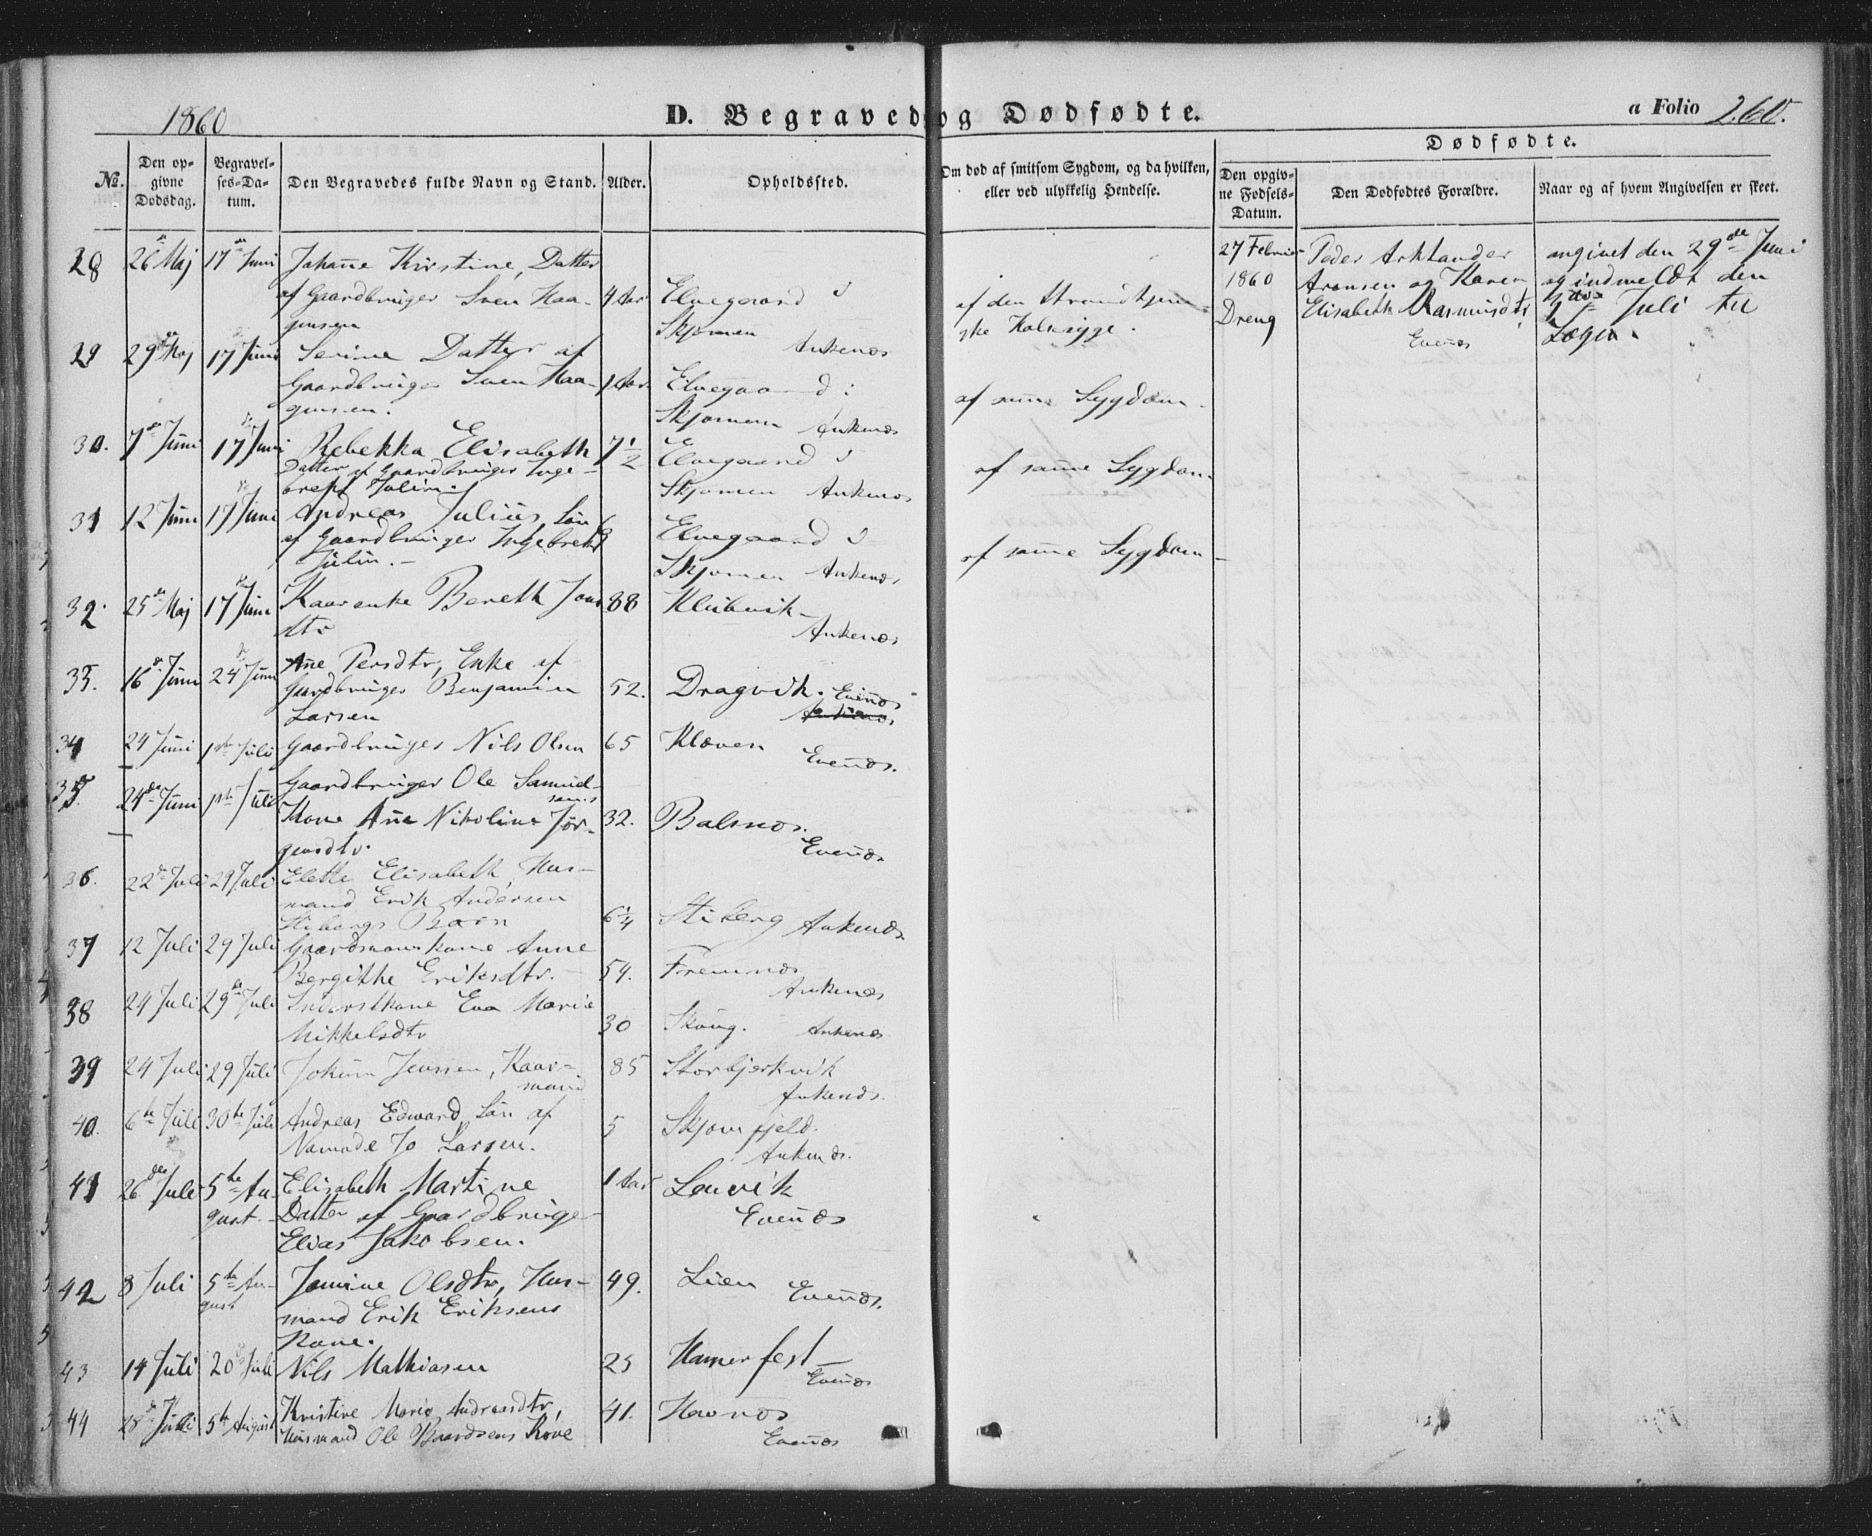 1860
D. Begravede og Dødfødte.
a Folio 260.
No.
Den opgivne Dødsdag.
Begravelses-Datum.
Den Begravedes fulde Navn og Stand.
Alder.
Opholdssted.
Om død af smitsom Sygdom, og da hvilken, eller ved ulykkelig Hendelse.
Dødfødte.
Den opgivne Fødsels-Datum.
Den Dødfødtes Forældre.
Naar og af hvem Angivelsen er skeet.
28 26 Maj 17 Juni Johanne Kirstine, Datter
af Gaardbruger Sven Haa- 4 Aar Elvegaard i
gensen Skjomen Ankenæs
af den
ske Halssyge.
27 Februar
1860
Dreng
Peder
Aronsen og Karen
Elisabeth Rasmusdtr
Evenæs
angivet den 29de Juni
og indmeldt den
Juli til
29 29de Maj 17 Juni Serine Datter af
Gaardbruger Sven Haa- 1 Aar Elvegaard i
gensen. Skjomen Ankenæs
af samme Sygdom
30. 7de Juni 17 Juni Rebekka Elisabeth 7½ Elvegaard i
Datter af Gaardbruger Inge-
brekt Julin. Skjomen Ankenæs
af samme Sygdom.
31 12 Juni 17 Juni Andreas Julius, Søn
af Gaardbruger Ingebrekt Elvegaard i
Julin. Skjomen Ankenæs
af samme Sygdom
32. 25de Maj 17 Juni Kaarenke Bereth Jons 88
dtr Ankenæs
33. 16de Juni 24 Juni Ane Persdtr, Enke af
Gaardbruger Benjamin 52. Dragvik. Evenæs
Larsen
34 24 Juni 1ste Juli Gaardbruger Nils Olsen 65 Kløven
Evenæs.
35. 24de Juni 1ste Juli Gaardbruger Ole Samuel-
sens
Kone Ane Nikoline Jør- 32. Balsnes.
gensdtr. Evenæs
36. 22de Juli 29 Juli Elette Elisabeth, Hus-
mand Erik Andersen
Stibergs Barn 6¼ Stiberg Ankenæs.
37 12 Juli 29 Juli Gaardmandskone Anne
Bergithe Eriksdtr. 54. Fremnes
Ankenæs
38 24 Juli 29de Juli Inderstkone Eva Marie
Mikkelsdtr 30 Ankenæs
39 24 Juli 29 Juli Jokum Jensen, Kaar-
mand 85 Storbjerkvik
Ankenæs.
40. 6te Juli 30te Juli Andreas Edward, Søn af
Nomade Jo Larsen. 5 Skjomfjeld.
Ankenæs.
41 26de Juli 5te Au-
gust. Elisabeth Martine 1 Aar Lenvik
Datter af Gaardbruger Evenæs
Elias Jakobsen.
42 8 Juli 5te Au-
gust Jomine Olsdtr, Hus- 49. Lien Evenæs.
mand Erik Eriksens
Kone.
43 14 Juli 20 Juli Nils Mathiasen 25 Hamerfest
Evenæs
44 28de Juli 5te August Kristine Marie Andreasdtr, 41. Havnes
Husmand Ole Baardsens Kone Evenæs